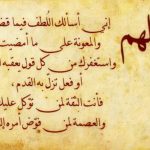 اللهم
إني أسألك اللطف فيما قضيت
والمعونة على ما أمضيت
واستغفرك من كل قول يعقبه
أو فعل تزل به القدم ،
فأنت الثقة لمن توكل عليك
والعصمة لمن فوض أمره إليك